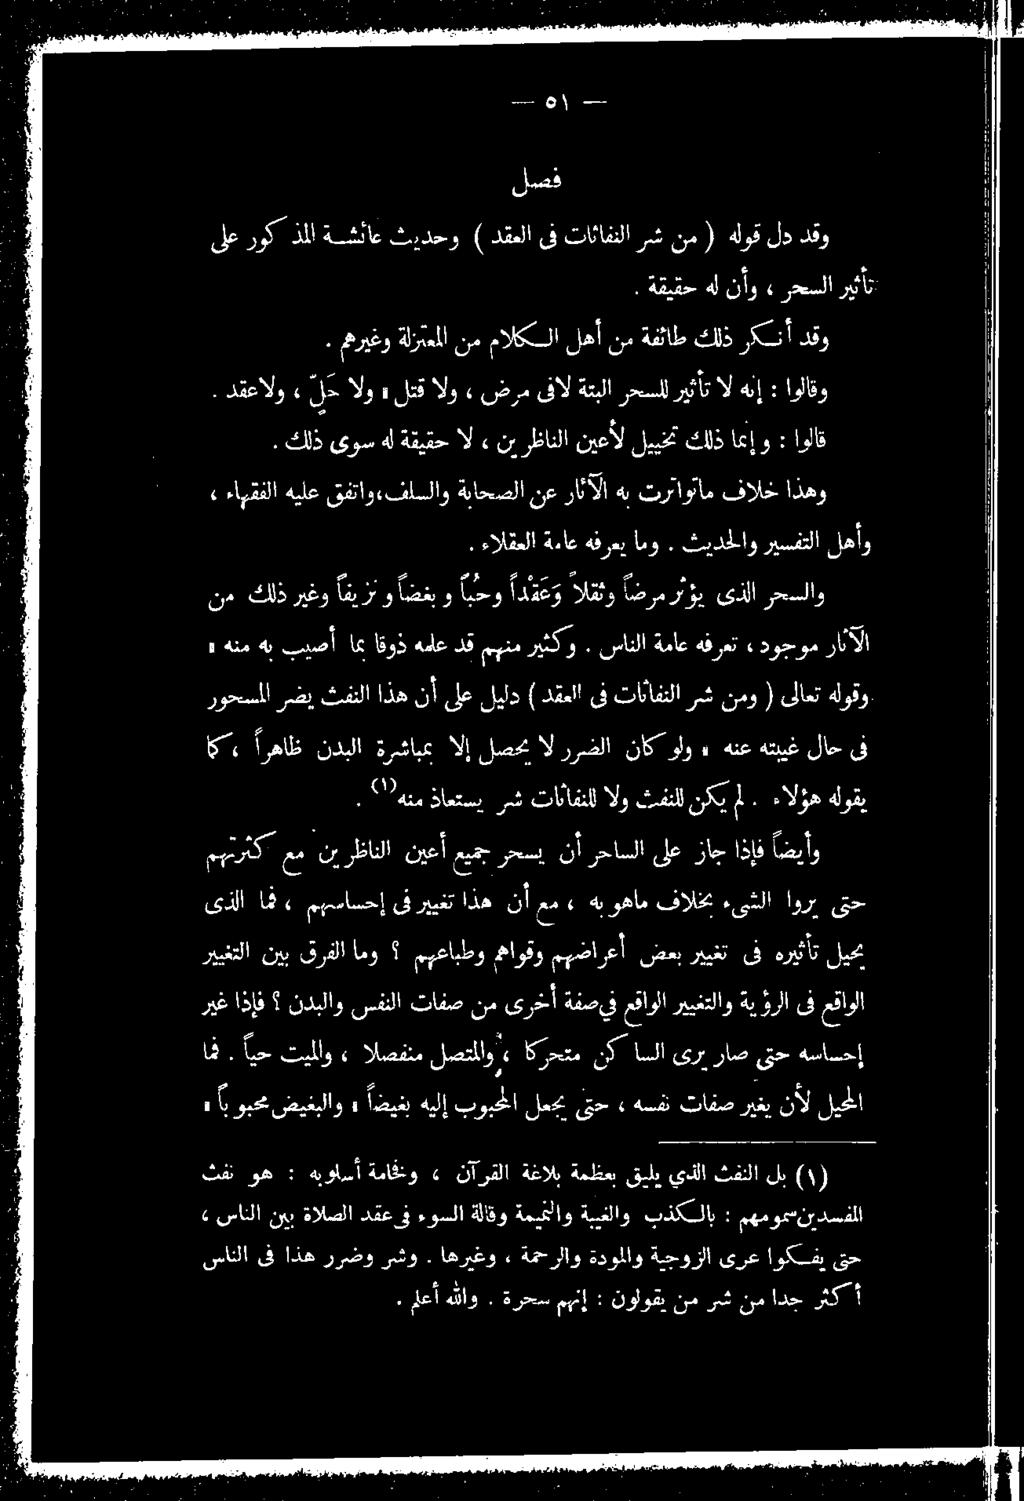 — ٥١ —
فصل
وقد دل قوله ( من شر النفاثات فى العقد ) وحديث عائشة المذكور على
تأثير السحر ، وأن له حقيقة .
وقد أنكر ذلك طائفة من أهل الكلام من المعتزلة وغيرهم .
وقالوا : إنه لا تأثير للسحر البتة لافى مرض ، ولا قتل ، ولا حَلّ ، ولاعقد .
قالوا : وإنما ذلك تخييل لأعين الناظرين ، لا حقيقة له سوى ذلك .
وهذا خلاف ماتواترت به الآثار عن الصحابة والسلف،واتفق عليه الفقهاء ،
وأهل التفسير والحديث . وما يعرفه عامة العقلاء .
والسحر الذى يؤثر مرضاً وثقلاً وَعَقْداً وحُبّاً وبغضاً ونزيفاً وغير ذلك من
الآثار موجود ، تعرفه عامة الناس . وكثير منهم قد علمه ذوقا بما أصيب به منه ،
وقوله تعالى ( ومن شر النفاثات فى العقد ) دليل على أن هذا النفث يضر المسحور
فى حال غيبته عنه ، ولو كان الضرر لا يحصل إلا بمباشرة البدن ظاهراً ، كما
يقوله هؤلاء . لم يكن للنفث ولا للنفاثات شر يستعاذ منه (١) .
وأيضاً فإذا جاز على الساحر أن يسحر جميع أعين الناظرين مع كثرتهم
حتى يروا الشىء بخلاف ماهو به ، مع أن هذا تغيير فى إحساسهم ، فما الذى
يحيل تأثيره فى تغيير بعض أعراضهم وقواهم وطباعهم ؟ وما الفرق بين التغيير
الواقع فى الرؤية والتغيير الواقع فى صفة أخرى من صفات النفس والبدن ؟ فإذا غير
إحساسه حتى صار يرى الساكن متحركا ، والمتصل منفصلا ، والميت حياً . فما
المحيل لأن يغير صفات نفسه ، حتى يجعل المحبوب إليه بغيضاً ، والبغيض محبوباً ،
(١) بل النفث الذي يليق بعظمة بلاغة القرآن ، وفخامة أسلوبه : هو نفث
المفسدين سمومهم : بالكذب والغيبة والنميمة وقالة السوء، فى عقد الصلاة بين الناس ،
حتى يفكوا عرى الزوجية والمودة والرحمة ، وغيرها . وشر وضرر هذا فى الناس
أكثر جدا من شر من يقولون : إنهم سحرة . والله أعلم .